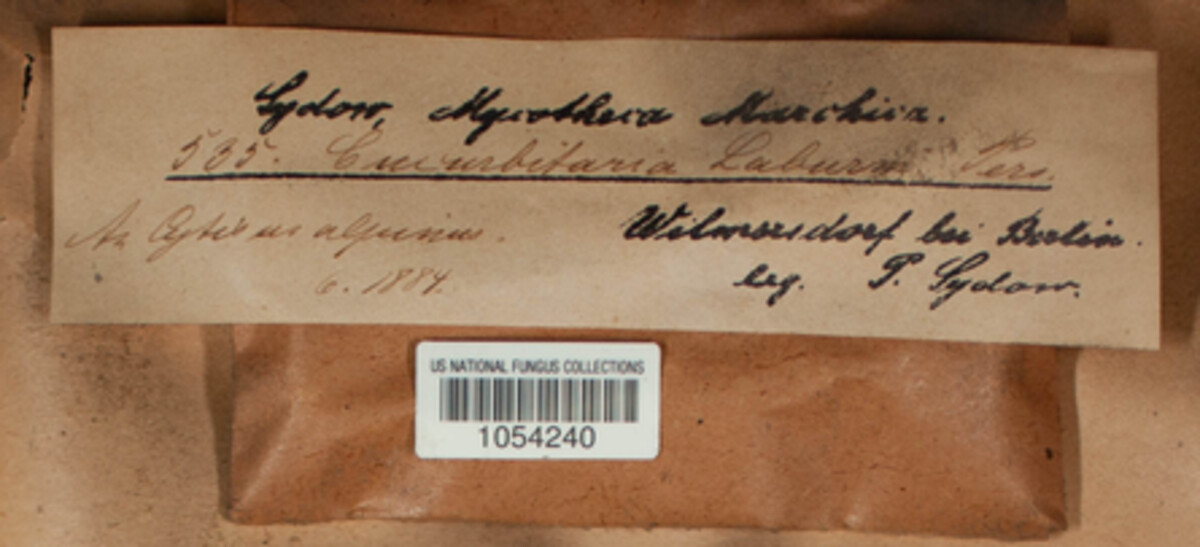 Sydow, Mycotheca Marchica.
535. Cucurbitaria Laburni Pers.
An Cytisus alpinus.
6. 1884.
Wilmersdorf bei Berlin.
leg. P. Sydow.
US NATIONAL FUNGUS COLLECTIONS
1054240